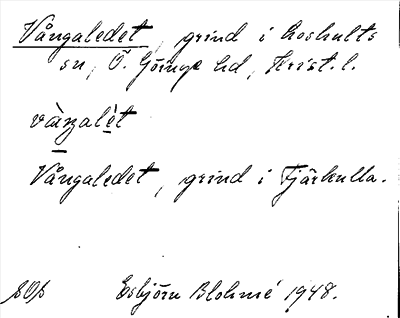 Vångaledet, grind i Loshults
sn, Ö. Göinge hd, Krist. l.
vàŋalèt
Vångaledet, grind i Tjärkulla.
SOp Esbjörn Blohmé 1948.